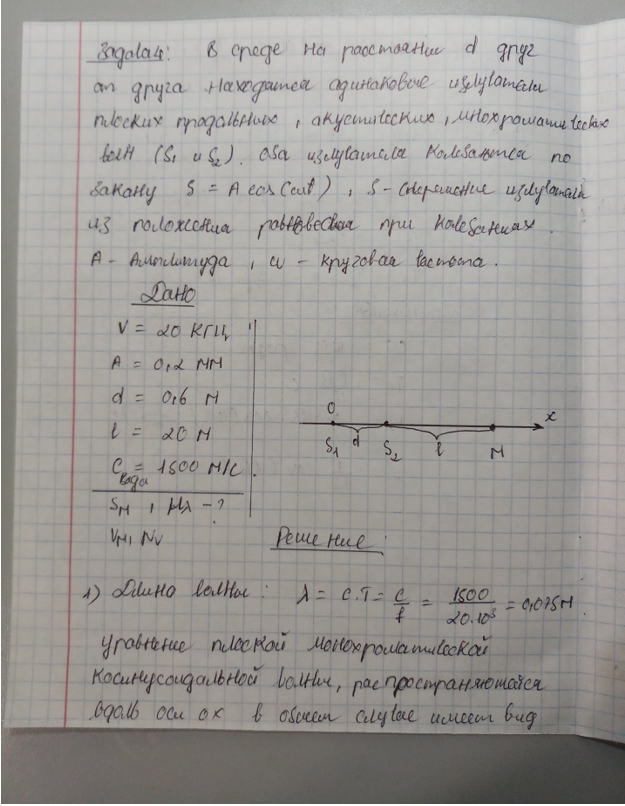 Задача 4: В среде на расстоянии d друг
от друга находятся одинаковые излучатели
плоских продольных, акустических, монохроматических
волн (S₁ и S₂). Оба излучателя колеблются по
закону S = A cos(ωt), S - смещение излучателя
из положения равновесия при колебаниях.
A - Амплитуда, ω - круговая частота.
Дано
ν = 20 кГц
A = 0,2 мм
d = 0,6 м
l = 20 м
C вода = 1500 м/с.
0
x
S₁ d S₂ l M
Решение:
1) Длина волны: λ = c.T = c/f = 1500/20.10³ = 0,075м.
уравнение плоской монохроматической
косинусоидальной волны, распространяющейся
вдоль оси ox в общем случае имеет вид